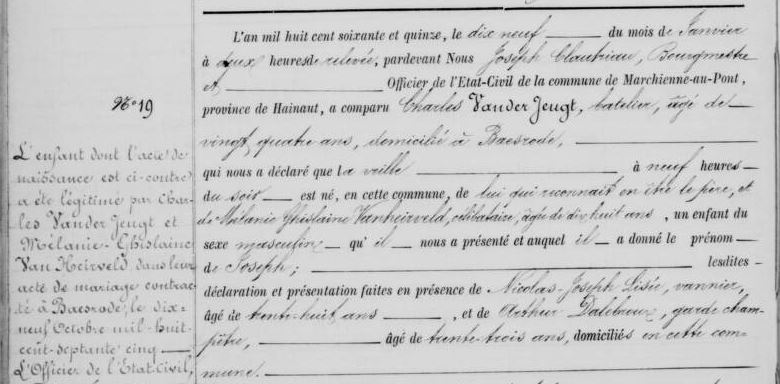 L'an mil huit cent soixante et quinze, le dix neuf du mois de Janvier
à deux heures de relevée, pardevant Nous Joseph Clautriau, Bourgmestre
et, Officier de l'Etat-Civil de la commune de Marchienne-au-Pont,
province de Hainaut, a comparu Charles Vander Jeugt, batelier, âgé de
vingt quatre ans, domicilié à Baesrode,
qui nous a déclaré que la veille à neuf heures
du soir est né, en cette commune, de lui qui reconnait en être le père, et
de Mélanie Ghislaine Vanheirveld, célibataire, âgée de dix huit ans, un enfant du
sexe masculin qu'il nous a présenté et auquel il a donné le prénom
de Joseph; lesdites
déclaration et présentation faites en présence de Nicolas-Joseph Lisée, vannier,
âgé de trente-huit ans, et de Arthur Dalebroux, garde cham-
pêtre, âgé de trente-trois ans, domiciliés en cette com-
mune.
N° 19
L'enfant dont l'acte de
naissance est ci-contre
a été légitimé par Char-
les Vander Jeugt et
Mélanie-Ghislaine
Van Heirveld, dans leur
acte de mariage contrac-
té à Baesrode, le dix-
neuf Octobre mil-huit-
cent-septante cinq
L'Officier de l'Etat-Civil,